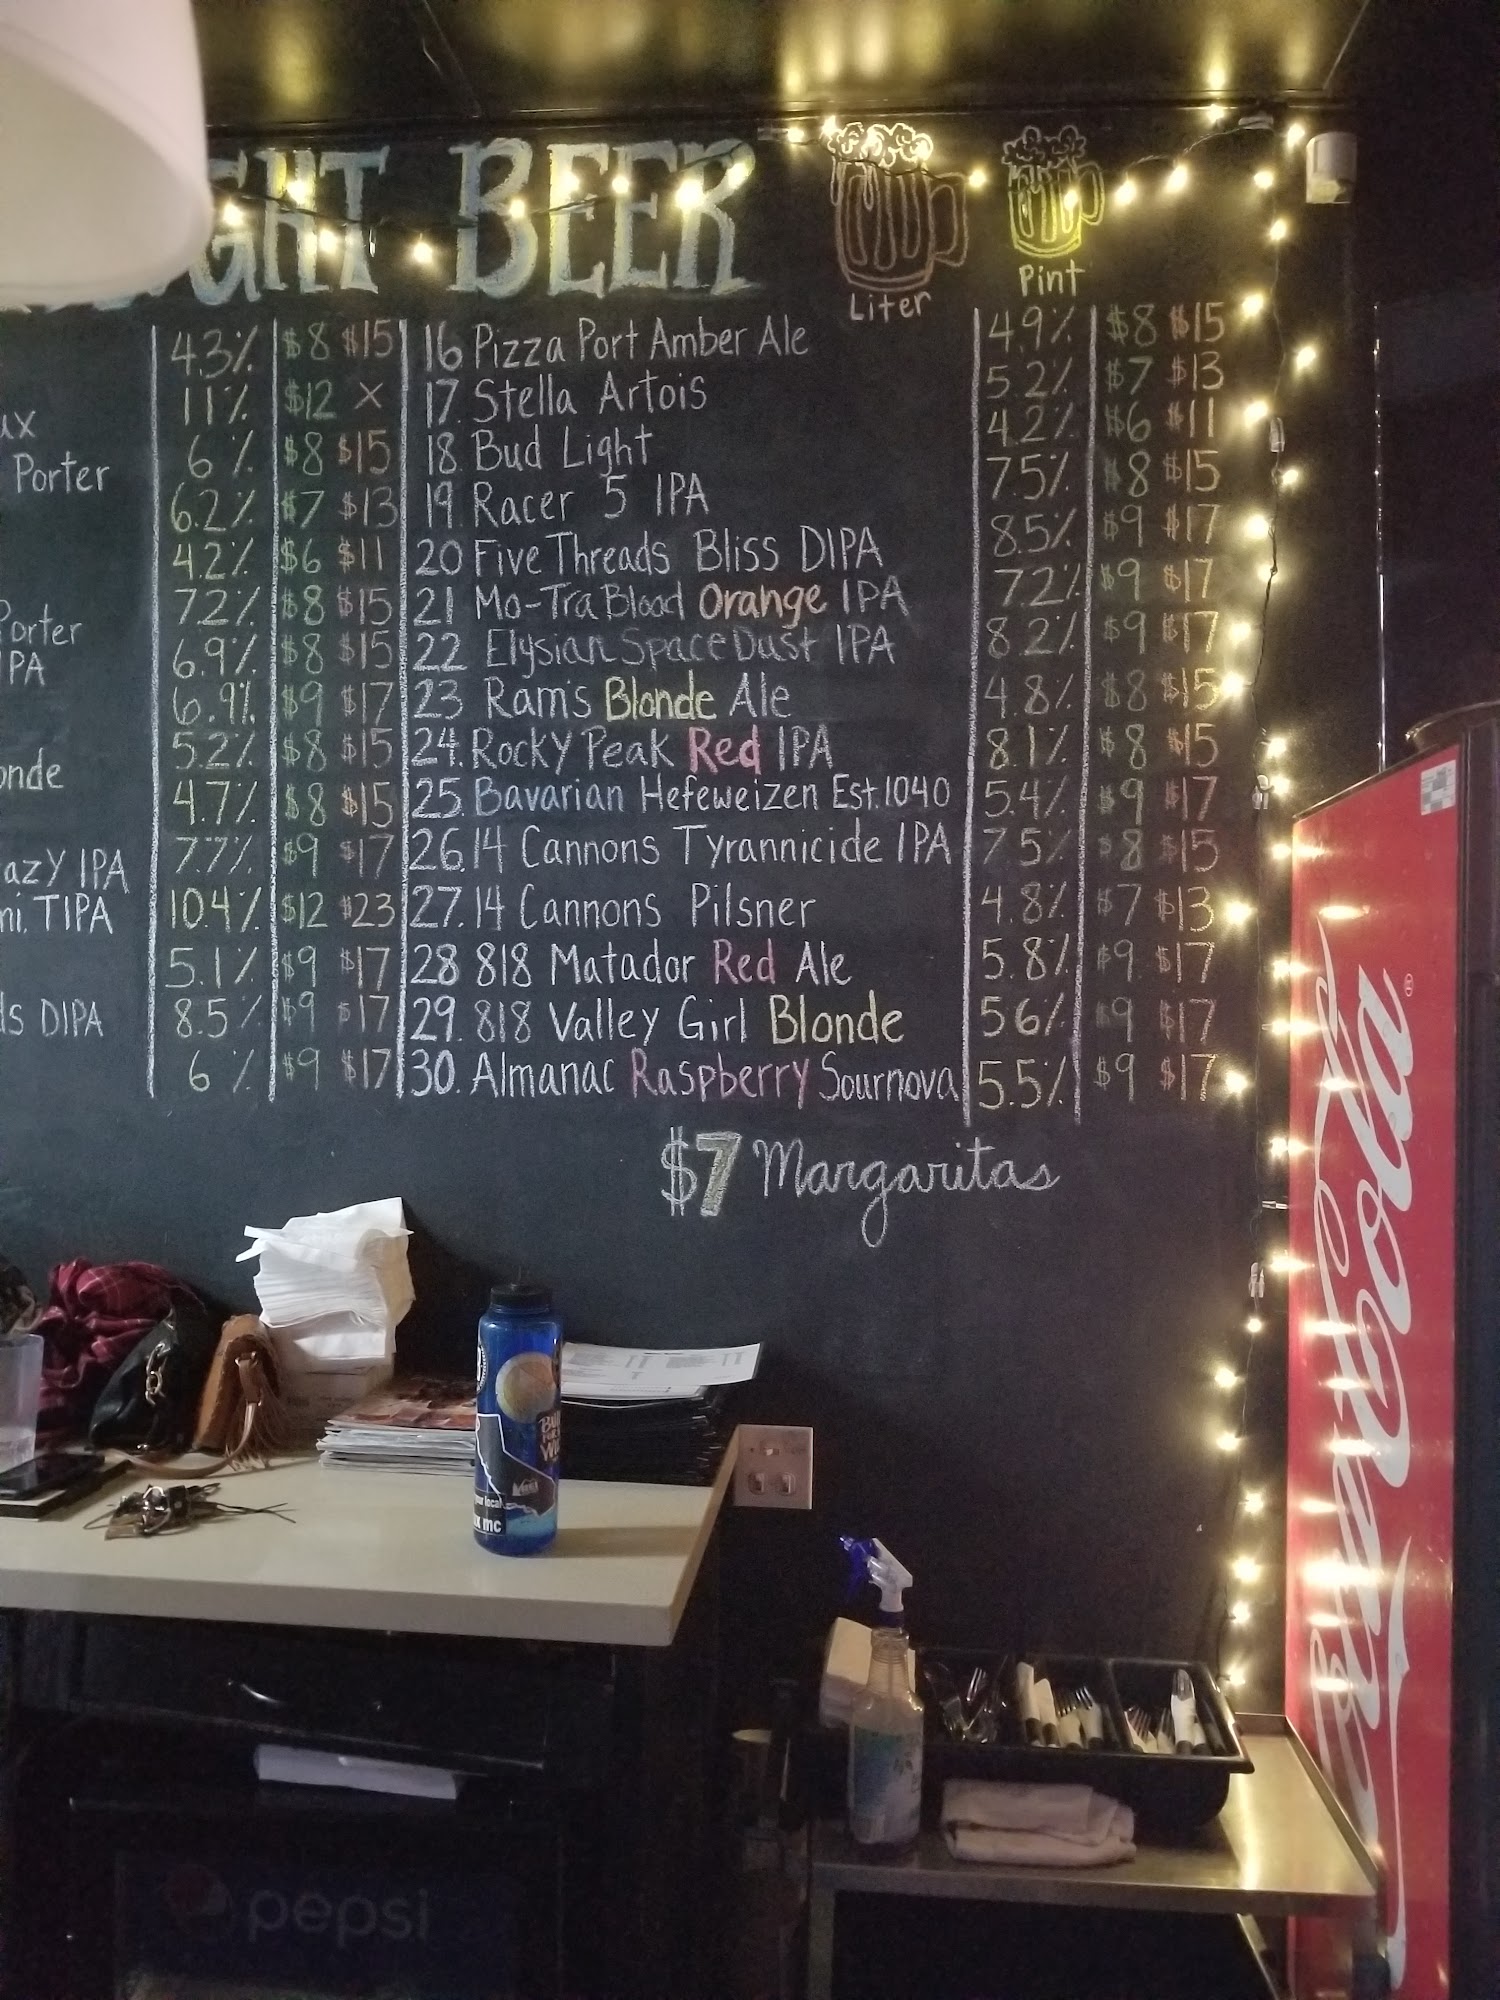 GHT BEER
Liter
Pint
4.3% $8 $15 16 Pizza Port Amber Ale 4.9% $8 $15
11% $12 X 17. Stella Artois 5.2% $7 $13
ux 6% $8 $15 18. Bud Light 4.2% $6 $11
Porter 6.2% $7 $13 19. Racer 5 IPA 7.5% $8 $15
4.2% $6 $11 20 Five Threads Bliss DIPA 8.5% $9 $17
Porter 7.2% $8 $15 21 Mo-Tra Blood Orange IPA 7.2% $9 $17
IPA 6.9% $8 $15 22 Elysian Space Dust IPA 8.2% $9 $17
6.9% $9 $17 23 Ram's Blonde Ale 4.8% $8 $15
onde 5.2% $8 $15 24. Rocky Peak Red IPA 8.1% $8 $15
4.7% $8 $15 25. Bavarian Hefeweizen Est. 1040 5.4% $9 $17
azy IPA 7.7% $9 $17 26. 14 Cannons Tyrannicide IPA 7.5% $8 $15
ni. TIPA 10.4% $12 $23 27. 14 Cannons Pilsner 4.8% $7 $13
5.1% $9 $17 28 818 Matador Red Ale 5.8% $9 $17
ds DIPA 8.5% $9 $17 29. 818 Valley Girl Blonde 5.6% $9 $17
6% $9 $17 30. Almanac Raspberry Sournova 5.5% $9 $17
$7 Margaritas
Coca-Cola
pepsi